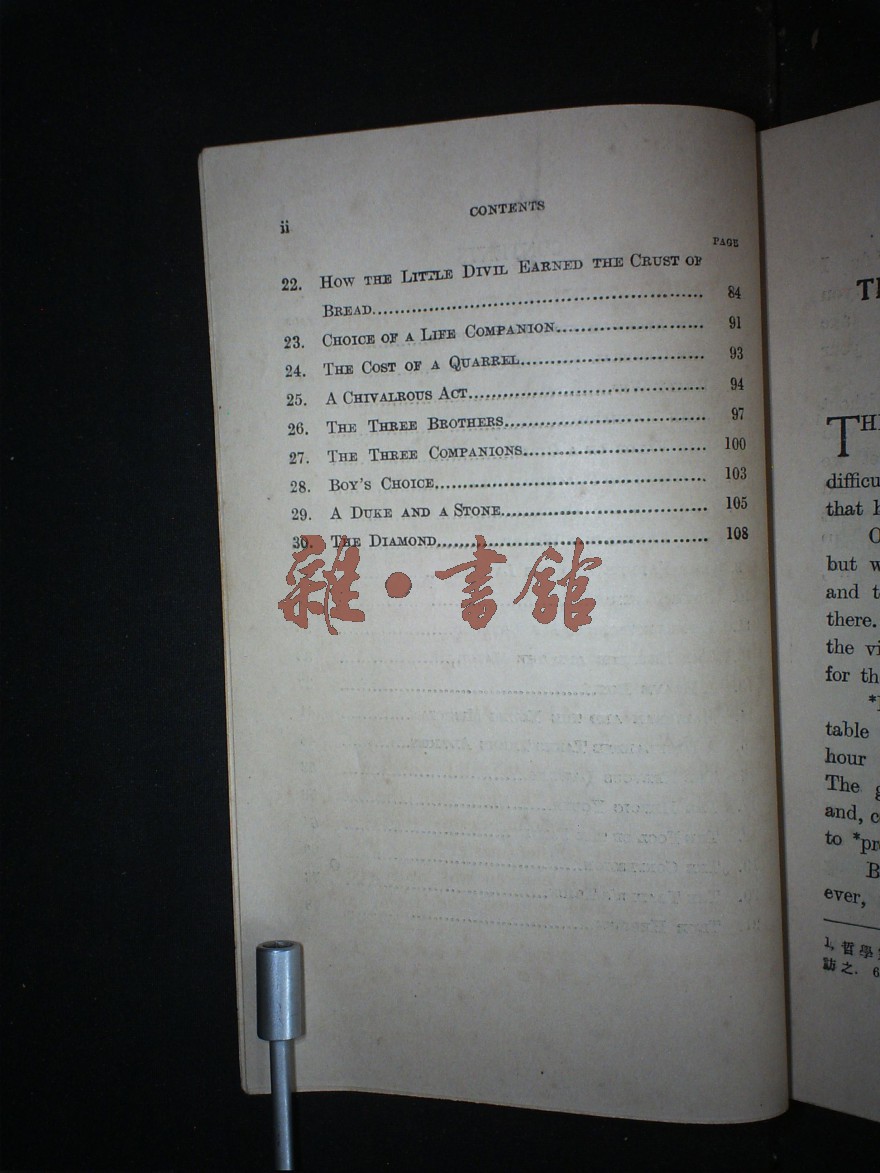 ii
CONTENTS
PAGE
22. HOW THE LITTLE DIVIL EARNED THE CRUST OF
BREAD 84
23. CHOICE OF A LIFE COMPANION 91
24. THE COST OF A QUARREL 93
25. A CHIVALROUS ACT 94
26. THE THREE BROTHERS 97
27. THE THREE COMPANIONS 100
28. BOY'S CHOICE 103
29. A DUKE AND A STONE 105
30. THE DIAMOND 108
雜·書館
difficu
that
but
and
there.
the
for
table
hour
The
and,
to
ever,
1, 哲學
訪之. 6